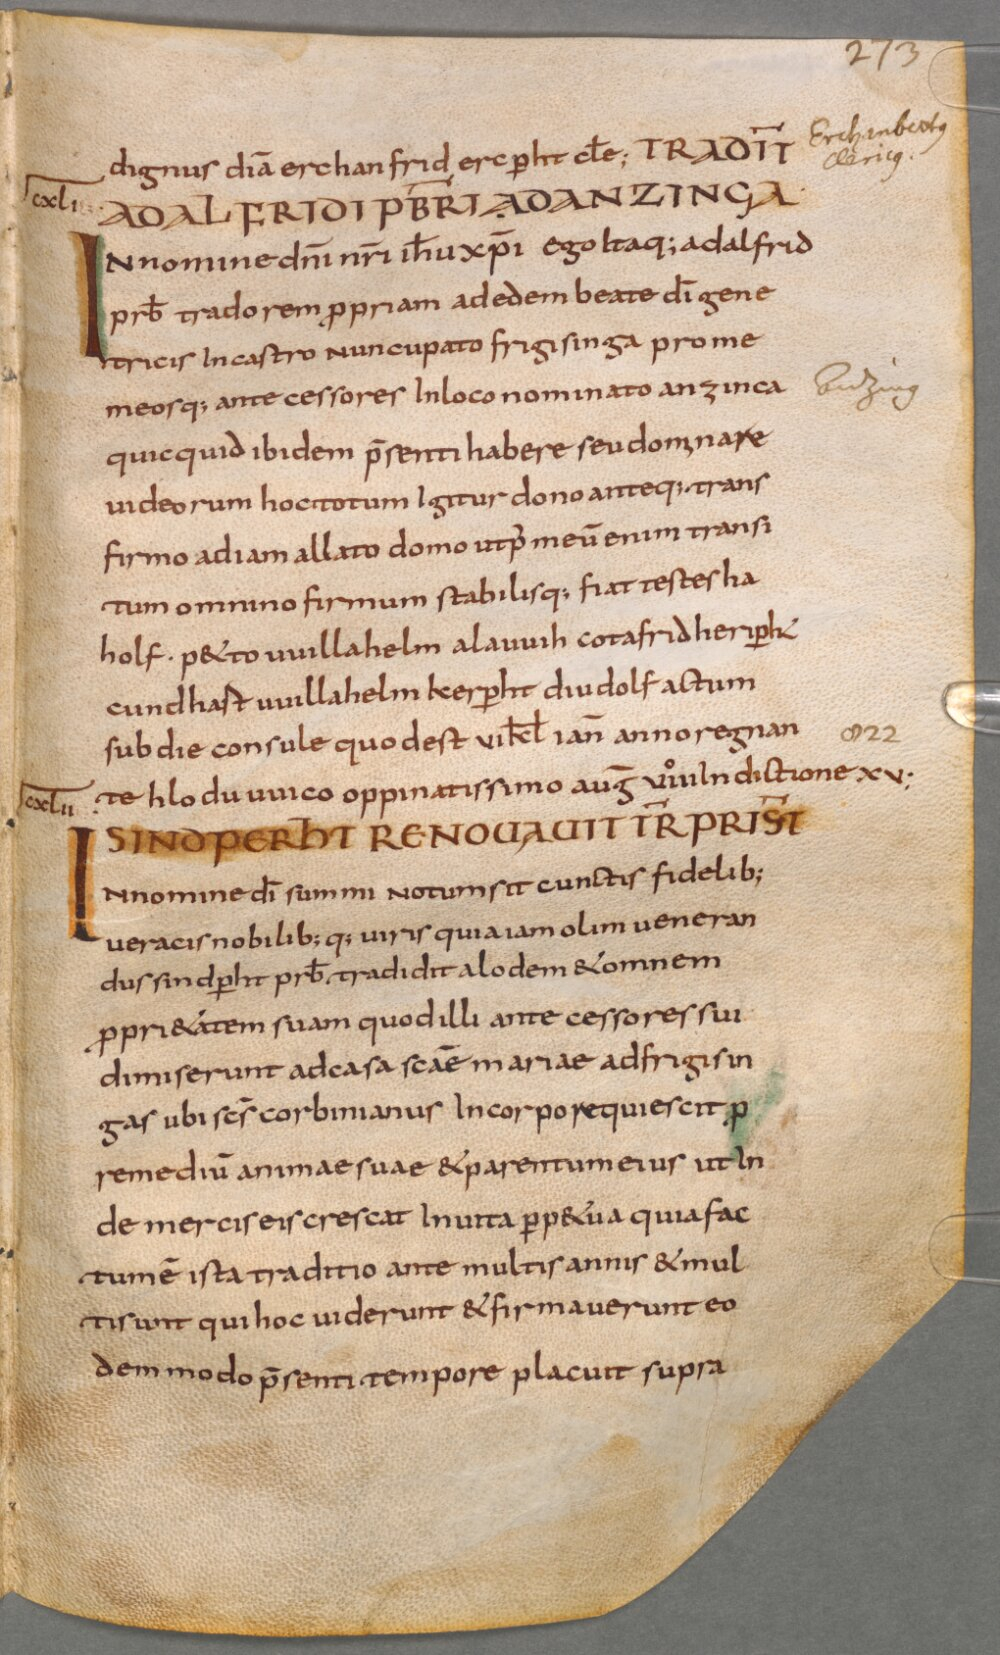 273
dignus diā erchanfrid ercp̄ht cl̄e; TRADIT̄
Erchanbertꝰ
clericꝰ.
cxli
ADALFRIDI PB̄RI ADANZINGA
INnomine dn̄i nr̄i ih̄u xp̄i ego Itaq; adalfrid
prb̄ trado rem ꝓpriam ad edem beate dī gene
tricis In castro Nuncupato frigisinga pro me
meosq; ante cessores In loco nominato anzinca
quicquid ibidem p̄senti habere seu dominare
uideorum hoc totum Igitur dono anteq; trans
firmo ad iam allato domo ut p̄ meū enim transi
tum omnino firmum stabilisq; fiat testes ha
holf. p&to uuillahelm alauuih cotafrid herip̄ht
cundhaft uuillahelm kerp̄ht diudolf actum
sub die consule quod est vi kl̄ iañ anno regnan
822
te hloduuuico oppinatissimo aug̅ viiii Indictione xv;
cxlii
SINDPERHT RENOUAUIT TR̄ PRIST̄
INnomine dī summi Notum sit cunctis fidelib;
veracis nobilib; q; uiris quia iam olim veneran
dus sindp̄ht prb̄ tradidit alodem & omnem
ꝓpri&atem suam quod illi ante cessores sui
dimiserunt ad casa scāe mariae ad frigisin
gas ubi scs̄ corbinianus In corpo requiescit ꝓ
remediū animae suae & parentum eius ut In
de mercis eis crescat In uita ꝑp&ua quia fac
tum ē ista traditio ante multis annis & mul
ti sunt qui hoc uiderunt & firmauerunt eo
dem modo p̄senti tempore placuit supra